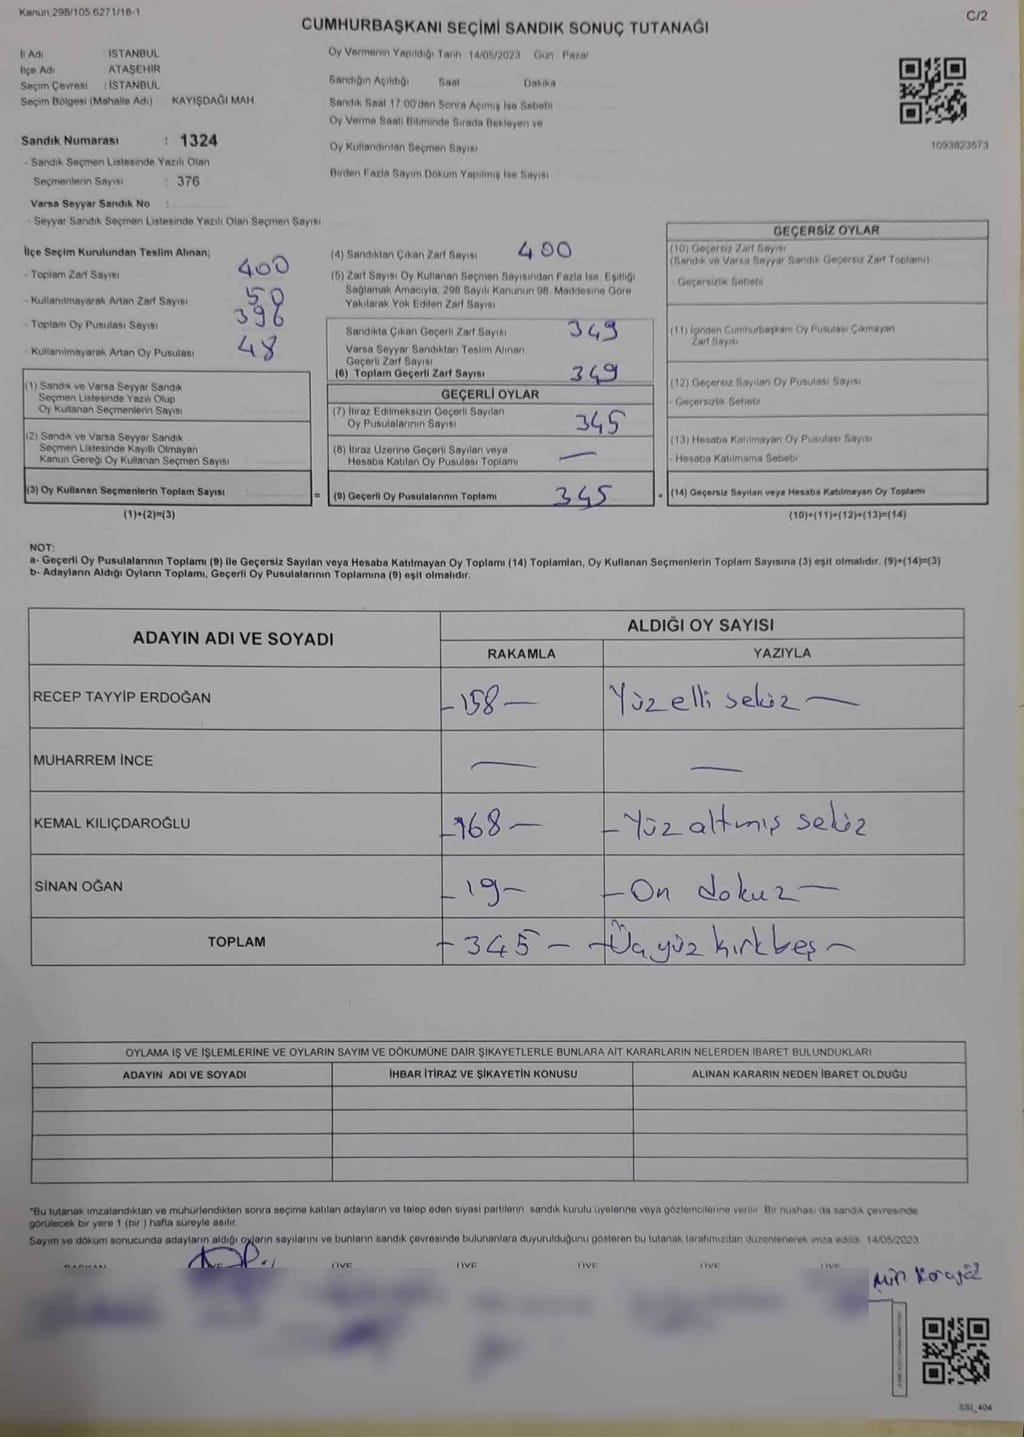 Kanun.298/105,6271/18-1
C/2
CUMHURBAŞKANI SEÇİMİ SANDIK SONUÇ TUTANAĞI
İl Adı : İSTANBUL
İlçe Adı : ATAŞEHİR
Seçim Çevresi : İSTANBUL
Seçim Bölgesi (Mahalle Adı) KAYIŞDAĞI MAH.
Sandık Numarası : 1324
- Sandık Seçmen Listesinde Yazılı Olan
Seçmenlerin Sayısı : 376
Varsa Seyyar Sandık No :
- Seyyar Sandık Seçmen Listesinde Yazılı Olan Seçmen Sayısı
Oy Vermenin Yapıldığı Tarih 14/05/2023 Gün Pazar
Sandığın Açıldığı Saat Dakika
Sandık Saat 17.00'den Sonra Açılmış İse Sebebi
Oy Verme Saati Bitiminde Sırada Bekleyen ve
Oy Kullandırılan Seçmen Sayısı
Birden Fazla Sayım Döküm Yapılmış İse Sayısı
1093823573
İlçe Seçim Kurulundan Teslim Alınan;
- Toplam Zarf Sayısı 400
- Kullanılmayarak Artan Zarf Sayısı 50
- Toplam Oy Pusulası Sayısı 396
- Kullanılmayarak Artan Oy Pusulası 48
(1) Sandık ve Varsa Seyyar Sandık
Seçmen Listesinde Yazılı Olup
Oy Kullanan Seçmenlerin Sayısı
(2) Sandık ve Varsa Seyyar Sandık
Seçmen Listesinde Kayıtlı Olmayan
Kanun Gereği Oy Kullanan Seçmen Sayısı
(3) Oy Kullanan Seçmenlerin Toplam Sayısı
(1)+(2)=(3)
=
(4) Sandıktan Çıkan Zarf Sayısı 400
(5) Zarf Sayısı Oy Kullanan Seçmen Sayısından Fazla İse, Eşitliği
Sağlamak Amacıyla, 298 Sayılı Kanunun 98. Maddesine Göre
Yakılarak Yok Edilen Zarf Sayısı
Sandıkta Çıkan Geçerli Zarf Sayısı 349
Varsa Seyyar Sandıktan Teslim Alınan
Geçerli Zarf Sayısı
(6) Toplam Geçerli Zarf Sayısı 349
GEÇERLİ OYLAR
(7) İtiraz Edilmeksizin Geçerli Sayılan
Oy Pusulalarının Sayısı 345
(8) İtiraz Üzerine Geçerli Sayılan veya
Hesaba Katılan Oy Pusulası Toplamı —
(9) Geçerli Oy Pusulalarının Toplamı 345
+
GEÇERSİZ OYLAR
(10) Geçersiz Zarf Sayısı
(Sandık ve Varsa Seyyar Sandık Geçersiz Zarf Toplamı)
- Geçersizlik Sebebi
(11) İçinden Cumhurbaşkanı Oy Pusulası Çıkmayan
Zarf Sayısı
(12) Geçersiz Sayılan Oy Pusulası Sayısı
- Geçersizlik Sebebi
(13) Hesaba Katılmayan Oy Pusulası Sayısı
- Hesaba Katılmama Sebebi
(14) Geçersiz Sayılan veya Hesaba Katılmayan Oy Toplamı
(10)+(11)+(12)+(13)=(14)
NOT:
a- Geçerli Oy Pusulalarının Toplamı (9) ile Geçersiz Sayılan veya Hesaba Katılmayan Oy Toplamı (14) Toplamları, Oy Kullanan Seçmenlerin Toplam Sayısına (3) eşit olmalıdır. (9)+(14)=(3)
b- Adayların Aldığı Oyların Toplamı, Geçerli Oy Pusulalarının Toplamına (9) eşit olmalıdır.
ADAYIN ADI VE SOYADI ALDIĞI OY SAYISI
RAKAMLA YAZIYLA
RECEP TAYYİP ERDOĞAN –158– Yüz elli sekiz –
MUHARREM İNCE — —
KEMAL KILIÇDAROĞLU –168– –Yüz altmış sekiz
SİNAN OĞAN –19– –On dokuz–
TOPLAM –345– –Üçyüz kırkbeş–
OYLAMA İŞ VE İŞLEMLERİNE VE OYLARIN SAYIM VE DÖKÜMÜNE DAİR ŞİKAYETLERLE BUNLARA AİT KARARLARIN NELERDEN İBARET BULUNDUKLARI
ADAYIN ADI VE SOYADI İHBAR İTİRAZ VE ŞİKAYETİN KONUSU ALINAN KARARIN NEDEN İBARET OLDUĞU
*Bu tutanak imzalandıktan ve mühürlendikten sonra seçime katılan adayların ve talep eden siyasi partilerin sandık kurulu üyelerine veya gözlemcilerine verilir. Bir nüshası da sandık çevresinde
görülecek bir yere 1 (bir ) hafta süreyle asılır.
Sayım ve döküm sonucunda adayların aldığı oyların sayılarını ve bunların sandık çevresinde bulunanlara duyurulduğunu gösteren bu tutanak tarafımızdan düzenlenerek imza edildi. 14/05/2023
BAŞKAN ÜYE ÜYE ÜYE ÜYE ÜYE ÜYE
SSI_404